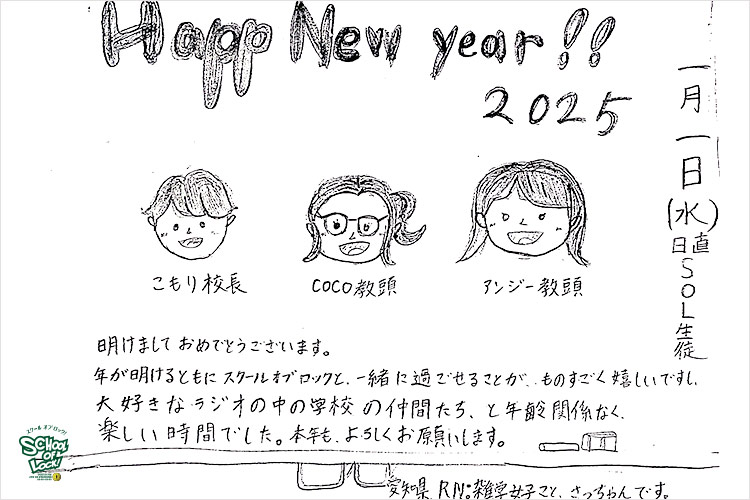 Happ New year!!
2025
一月一日(水)
日直 SOL生徒
こもり校長
COCO教頭
アンジー教頭
明けまして おめでとうございます。
年が明けるともに スクールオブロックと、一緒に過ごせることが、ものすごく嬉しいですし、
大好きな ラジオの中の学校 の仲間たち、と年齢関係なく、
楽しい時間でした。本年も、よろしくお願いします。
スクール オブ ロック!
SCHOOL
OF
LOCK!
愛知県 RN:雑学女子こと、さっちゃんです。